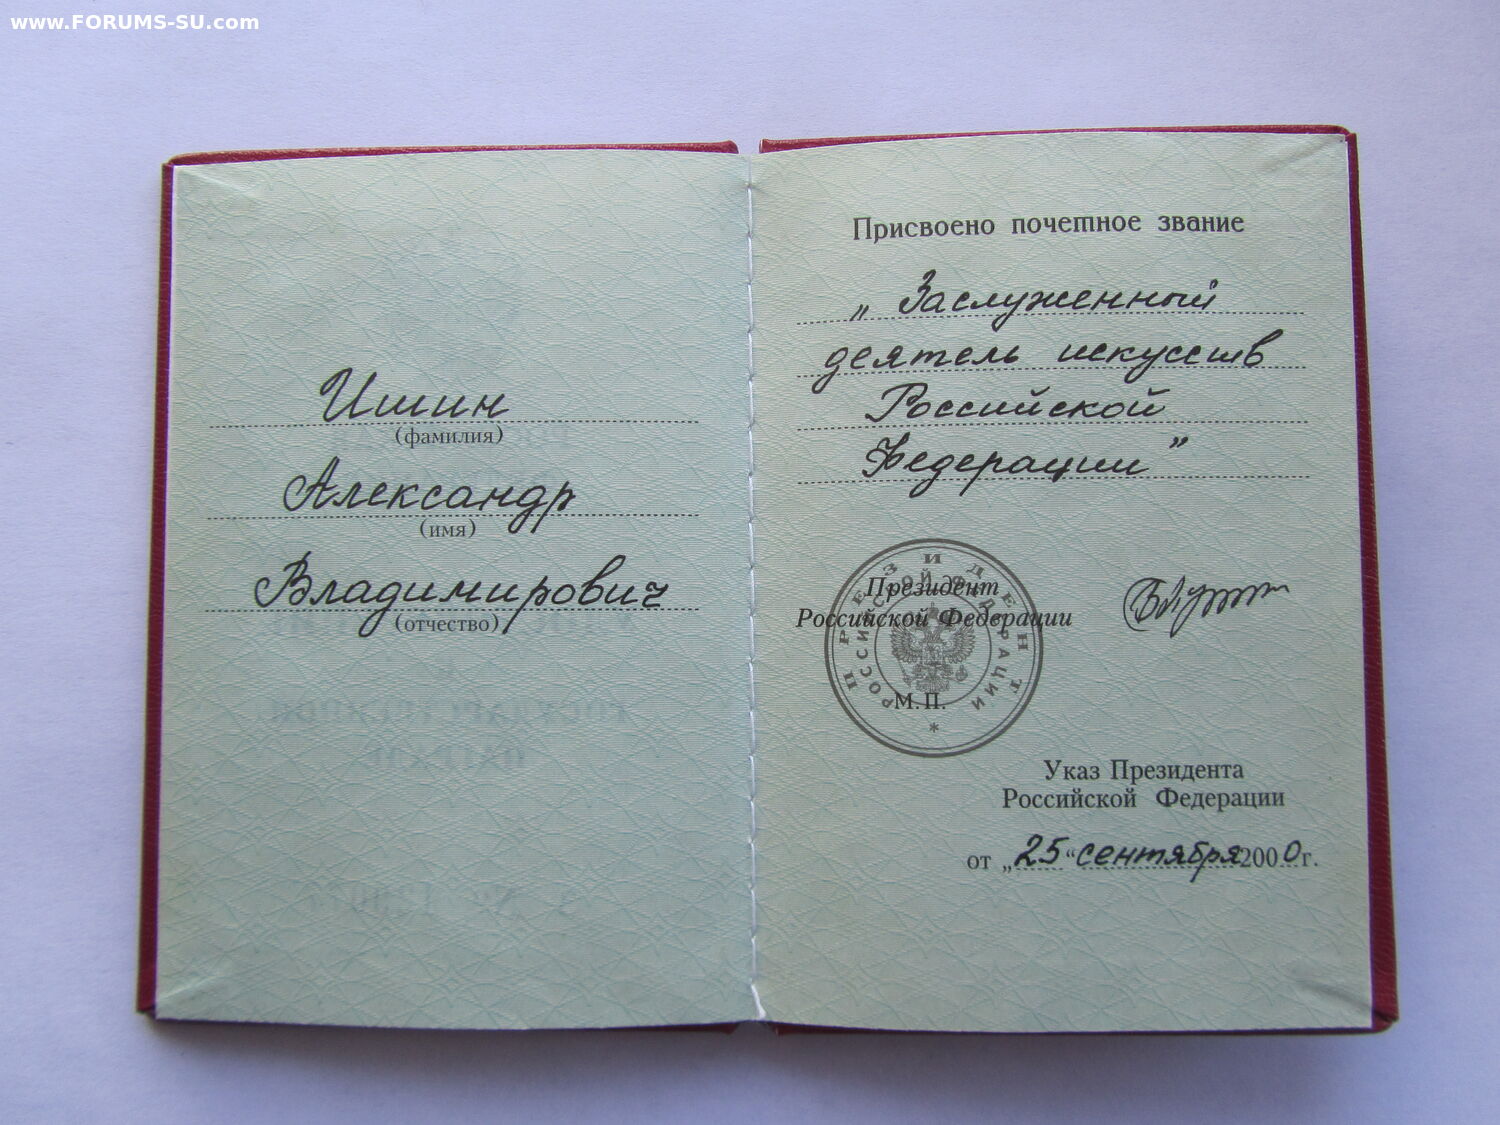 www.FORUMS-SU.com
Ишин
(фамилия)
Александр
(имя)
Владимирович
(отчество)
Присвоено почетное звание
„Заслуженный
деятель искусств
Российской
Федерации”
Президент
Российской Федерации
ПРЕЗИДЕНТ
РОССИЙСКОЙ ФЕДЕРАЦИИ
М.П.
*
Указ Президента
Российской Федерации
от „25“ сентября 2000 г.